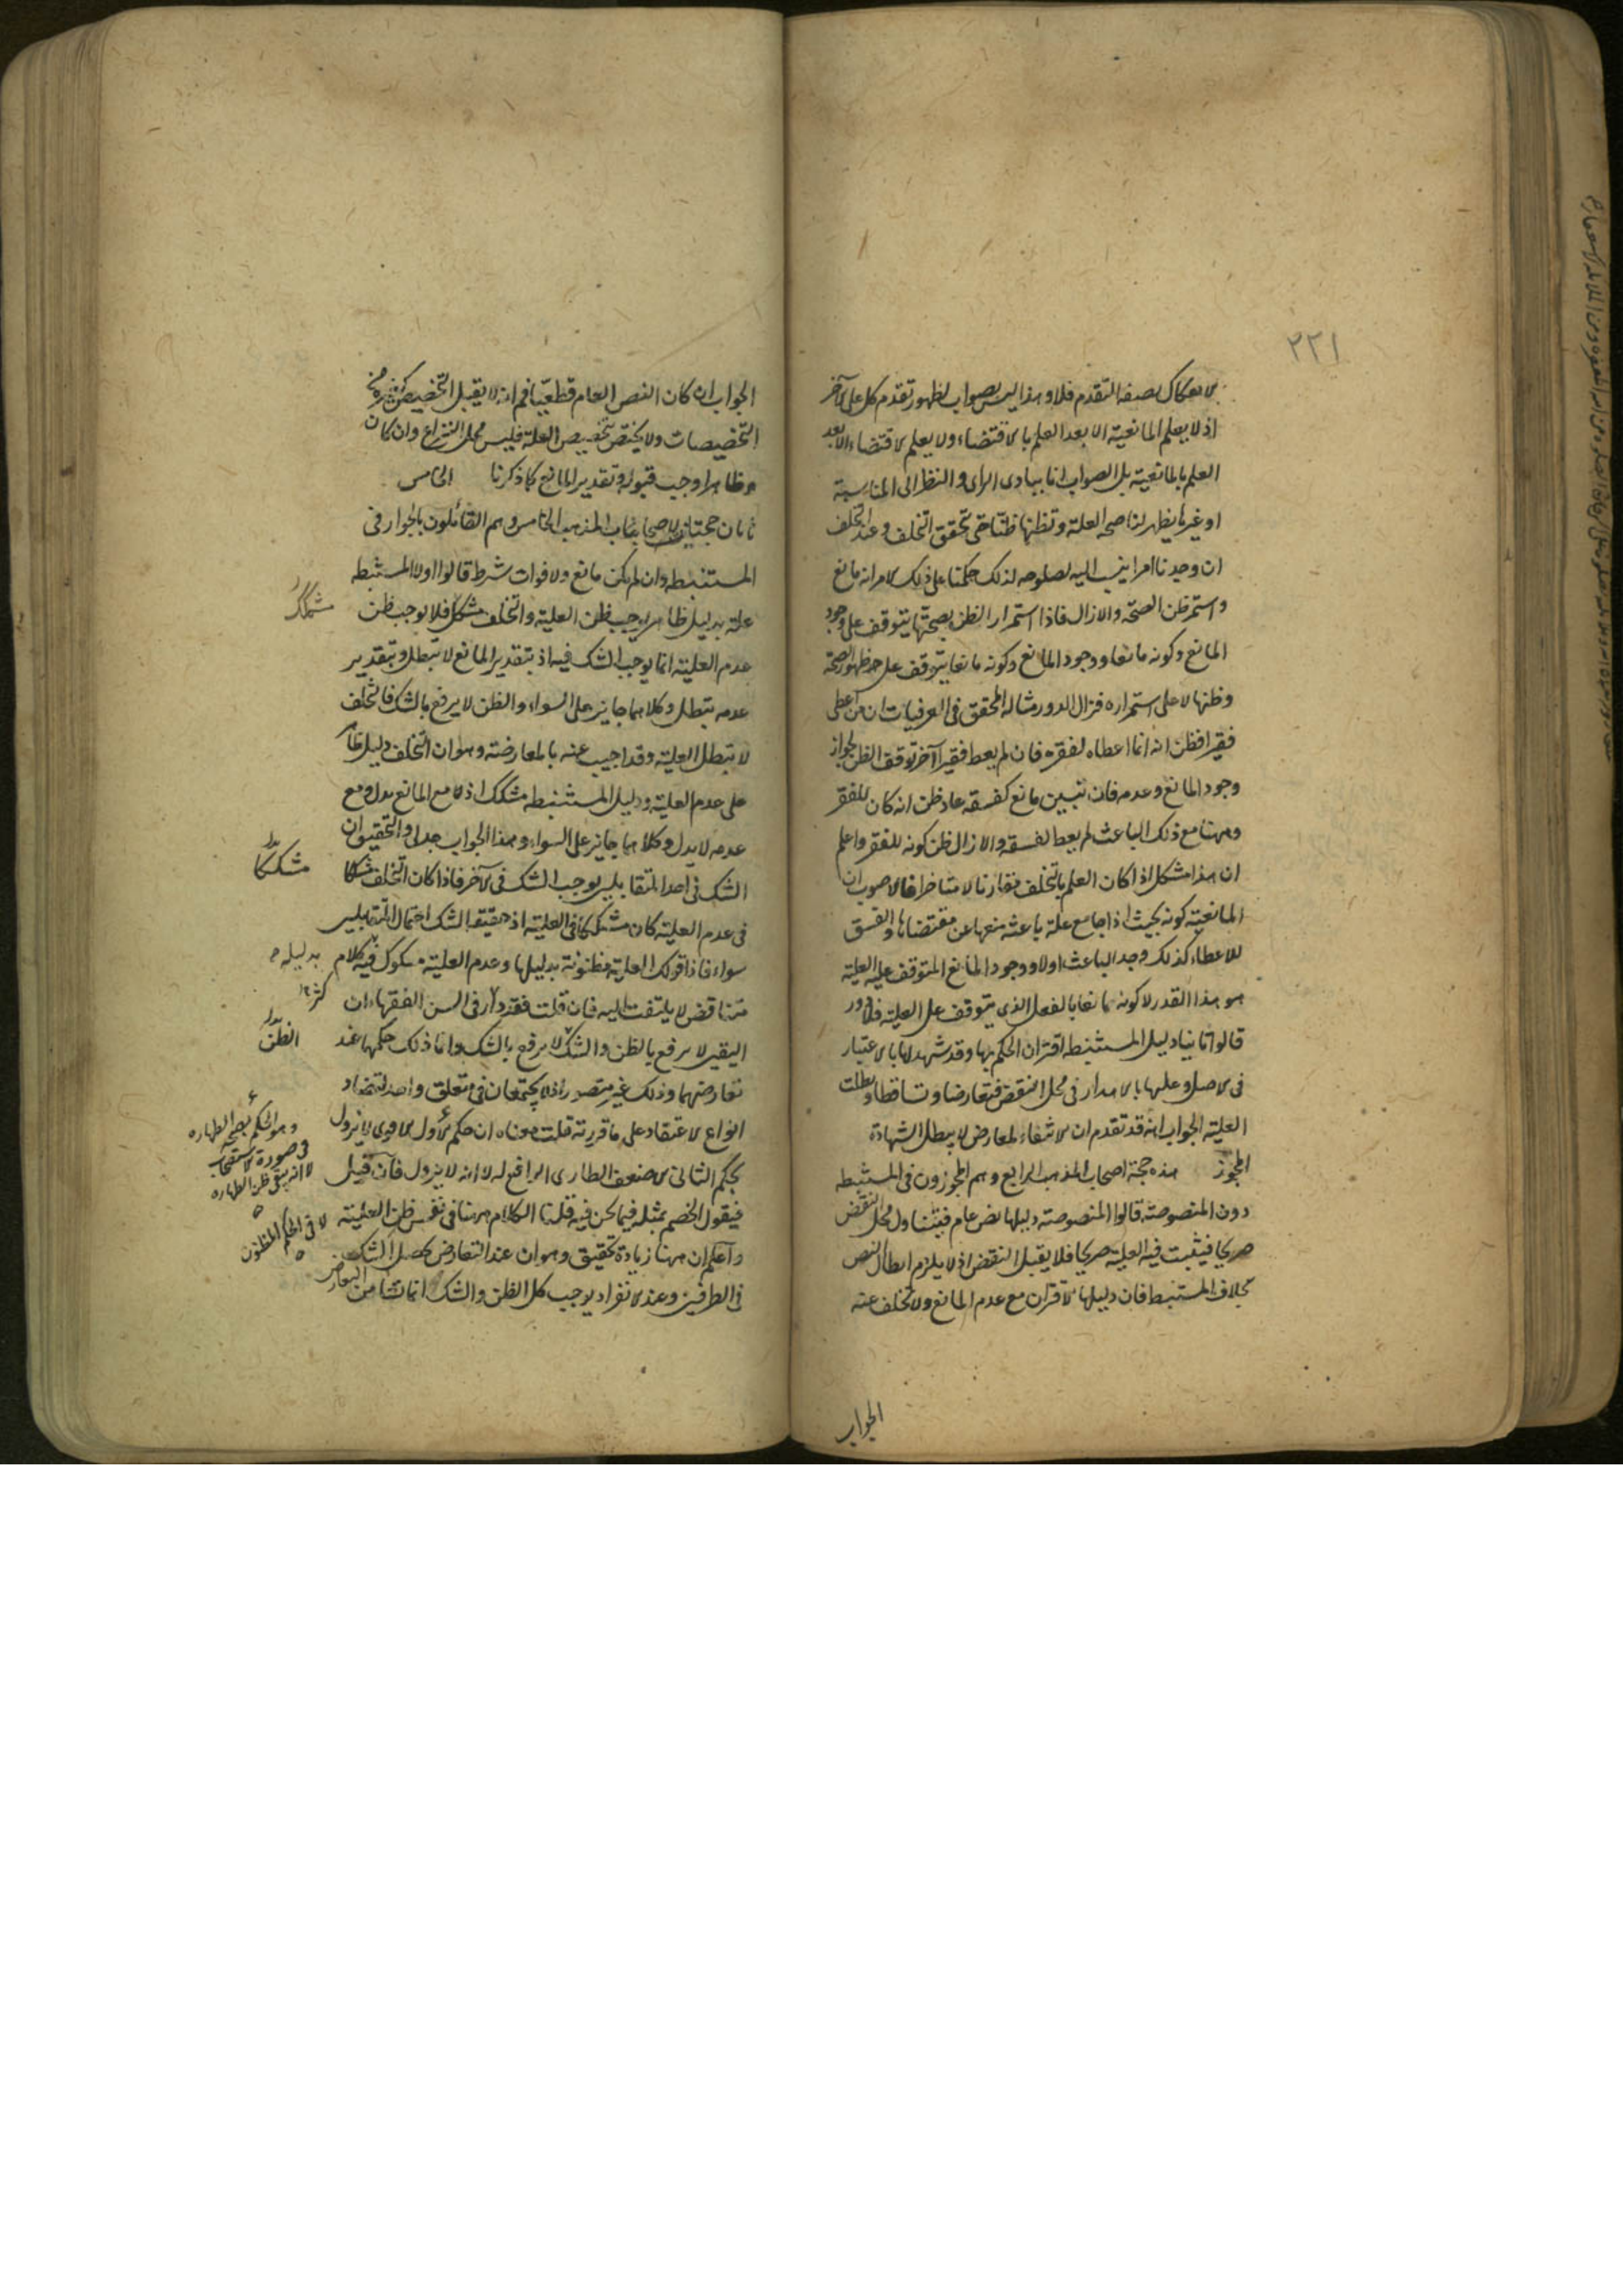 ٢٢١
الانفكاك بصفة التقدم فلا وهذا ليس بصواب لظهور تقدم كل على الآخر
اذ لا يعلم المانعية الا بعد العلم بالاقتضاء ولا يعلم الاقتضاء الا بعد
العلم بالمانعية بل الصواب انا ببادى الرأى والنظر الى المناسبة
او غيرها يظهر لنا صحة العلة ونظنها ظنا حتى تحقق التخلف وعند التخلف
ان وجدنا امرا ينسب اليه لصلوحه لذلك حكمنا على ذلك الامر انه مانع
واستمر ظن الصحة والا زال فاذا استمرار الظن بصحتها يتوقف على وجود
المانع وكونه مانعا ووجود المانع وكونه مانعا يتوقف على ظهور الصحة
وظنها لا على استمراره فزال الدور مثاله المحقق فى العرفيات ان من اعطى
فقيرا فظن انه انما اعطاه لفقره فان لم يعط فقيرا آخر توقف الظن لجواز
وجود المانع وعدمه فان تبين مانع كفسقه عاد ظن انه كان للفقر
وههنا مع ذلك الباعث لم يعط لفسقه والا زال ظن كونه للفقر واعلم
ان هذا مشكل اذا كان العلم بالتخلف مقارنا لا متاخرا فالاصوب ان
المانعية كونه بحيث اذا جامع علة باعثة منعها عن مقتضاها والفسق
للاعطاء كذلك وجد الباعث اولا ووجود المانع المتوقف عليه العلية
هو هذا القدر لا كونه مانعا بالفعل الذى يتوقف على العلية فلا دور
قالوا ثانيا دليل المستنبطة اقتران الحكم بها وقد شهد لها بالاعتبار
فى الاصل وعليها بالاهدار فى محل النقض فتعارضا وتساقطا وبطلت
العلية الجواب انه قد تقدم ان الانتفاء لمعارض لا يبطل الشهادة
المجوز هذه حجة اصحاب المذهب الرابع وهم المجوزون فى المستنبطة
دون المنصوصة قالوا المنصوصة دليلها نص عام فيتناول محل النقض
صريحا فيثبت فيه العلية صريحا فلا يقبل النقض اذ لا يلزم ابطال النص
بخلاف المستنبط فان دليلها الاقتران مع عدم المانع ولا تخلف عنه
الجواب
الجواب ان كان النص العام قطعيا فمانه لا يقبل التخصيص كغيره من
التخصيصات ولا يختص بتخصيص العلة فليس محل النزاع وان كان
ظاهرا وجب قبوله وتقدير المانع كما ذكرنا الخامس
ثانى حجتان لاصحاب المذهب الخامس وهم القائلون بالجواز فى
المستنبطة وان لم يكن مانع ولا فوات شرط قالوا اولا المستنبطة
علة بدليل ظاهر يوجب ظن العلية والتخلف مشكك فلا يوجب ظن
مشكك
عدم العلية انما يوجب الشك فيه اذ بتقدير المانع لا تبطل وبتقدير
عدمه تبطل وكلاهما جايز على السواء والظن لا يرفع بالشك فالتخلف
لا تبطل العلية وقد اجيب عنه بالمعارضة وهو ان التخلف دليل ظاهر
على عدم العلية ودليل المستنبطة مشكك اذ لا مع المانع يدل ومع
عدمه لا يدل وكلاهما جايز على السواء وهذا الجواب جدلى والتحقيق ان
الشك فى احد المتقابلين يوجب الشك فى الآخر فاذا كان التخلف مشككا
مشككا
فى عدم العلية كان مشككا فى العلية اذ حقيقة الشك احتمال المتقابلين
سواء فاذا قولك العلية مظنونة بدليلها وعدم العلية مشكوك فيه كلام
بدليله
متناقض لا يلتفت اليه فان قلت فقد دار فى السن الفقهاء ان
كثر
اليقين لا يرفع بالظن والشك لا يرفع بالشك وانما ذلك حكمها عند
الظن
تعارضهما وذلك غير متصور اذ لا يجتمعان فى متعلق واحد لتضاد
انواع الاعتقاد على ما قررته قلت معناه ان حكم الاول الاقوى لا يزول
بحكم الثانى الاضعف الطارى الرافع له لا انه لا يزول فان قيل
وهو الحكم بصحة الطهارة
فى صورة الاستصحاب
لا انه يبقى ظن الطهارة
فيقول الخصم بمثله فيما نحن فيه قلنا الكلام ههنا فى نفس ظن العلية
لا فى الحكم المظنون
واعلم ان ههنا زيادة تحقيق وهو ان عند التعارض يحصل الشك
فى الطرفين وعند الانفراد يوجب كل الظن والشك انما نشأ من التعارض